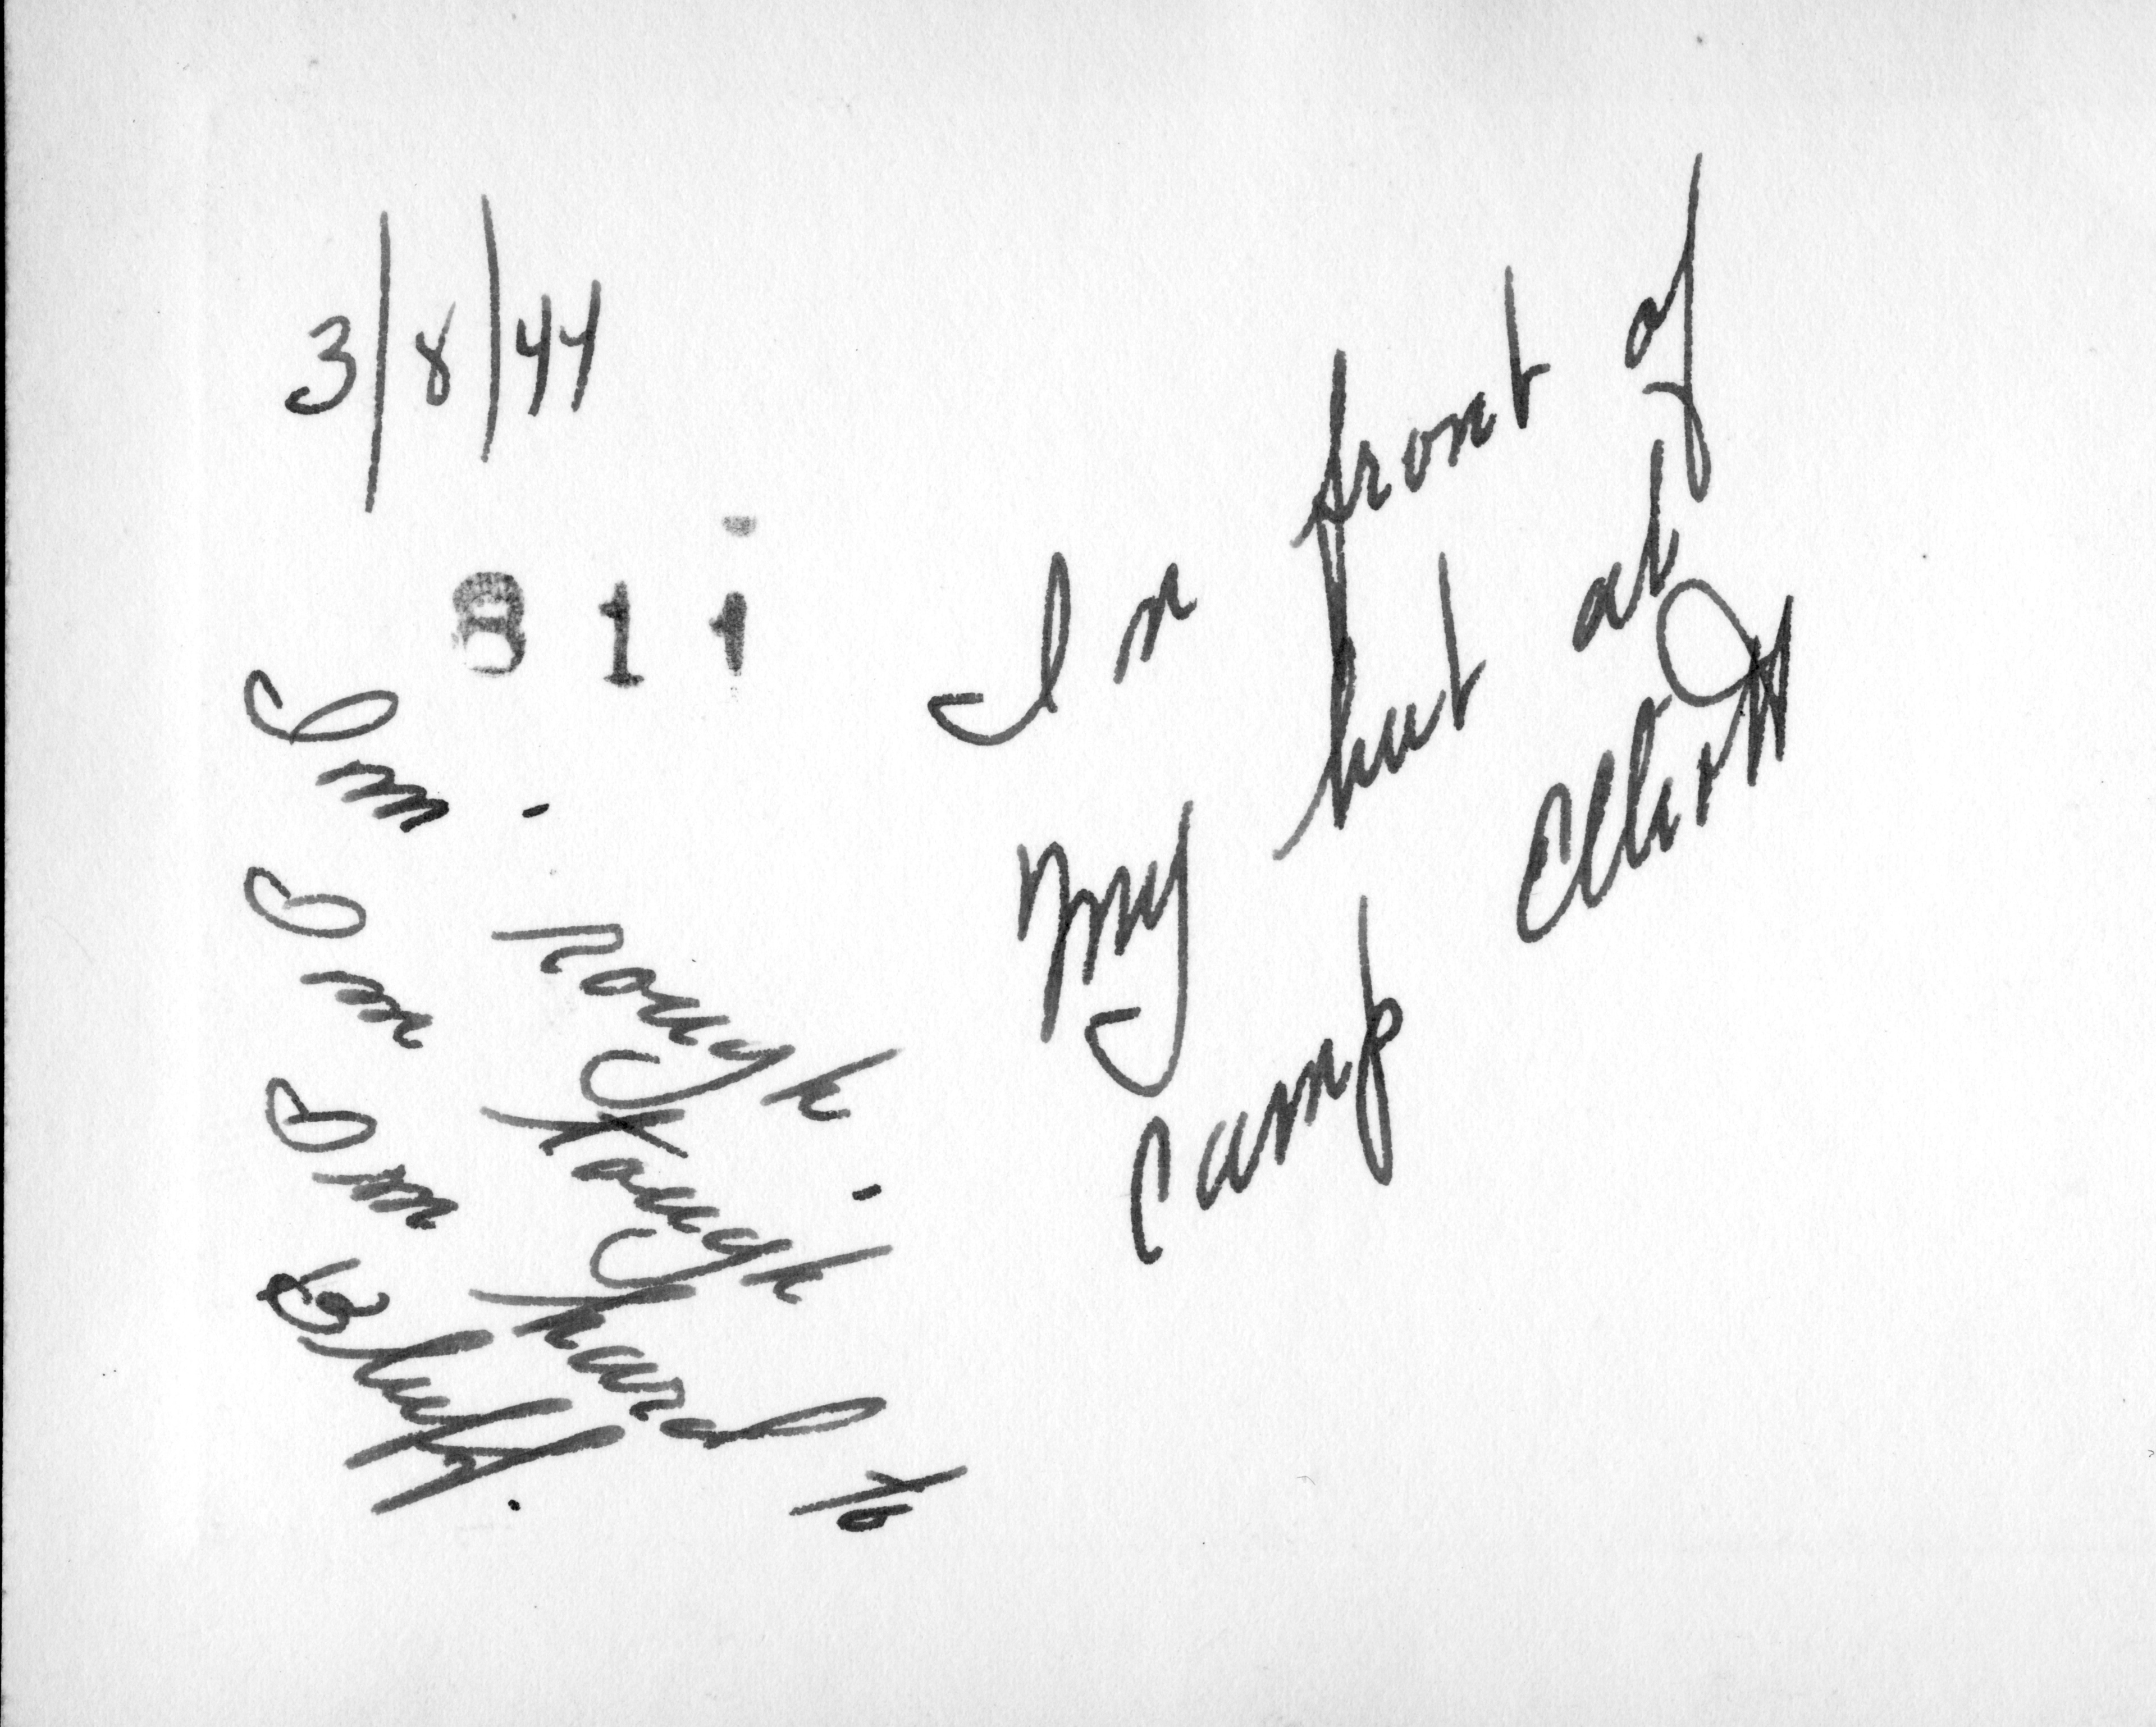 3/8/44
811
Im rough.
Im tough.
Im hard to
Bluff.
In front of
my hut at
Camp Elliott